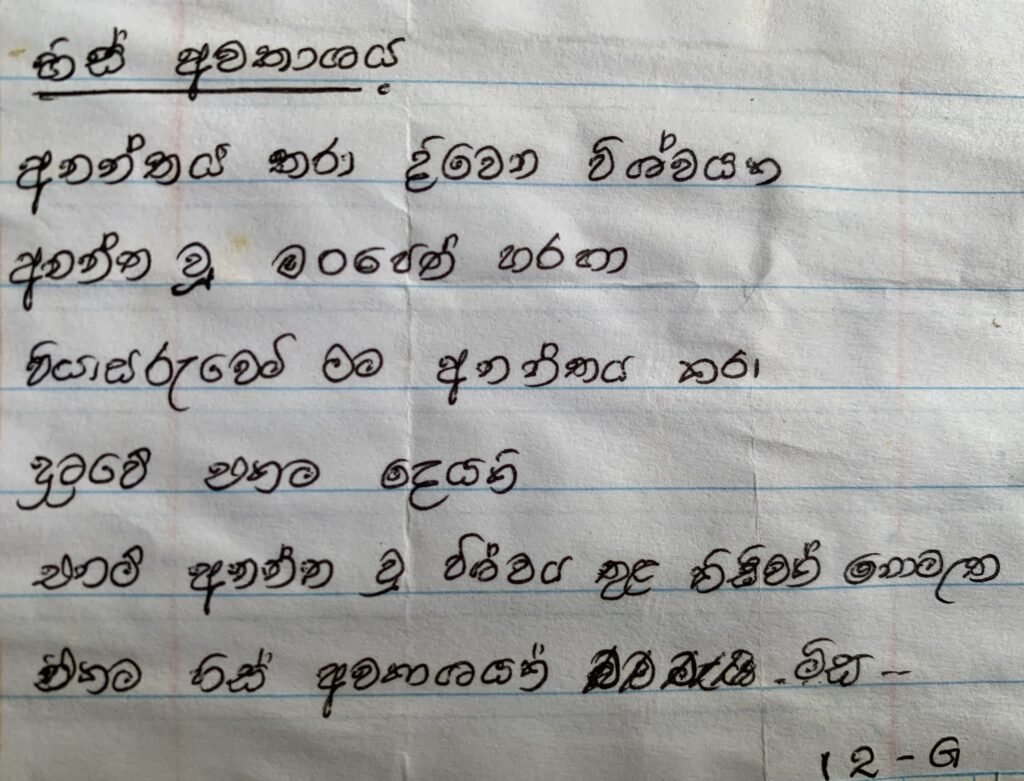 හිස් අවකාශය
අනන්තය කරා දිවෙන විශ්වයක
අනන්ත වූ මංපෙත් හරහා
පියාසරුවෙමි මම අනන්තය කරා
දුටුවේ එකම දෙයකි
එනම් අනන්ත වූ විශ්වය තුළ කිසිවක් නොමැත
එකම හිස් අවකාශයක් මිස -
12 - G